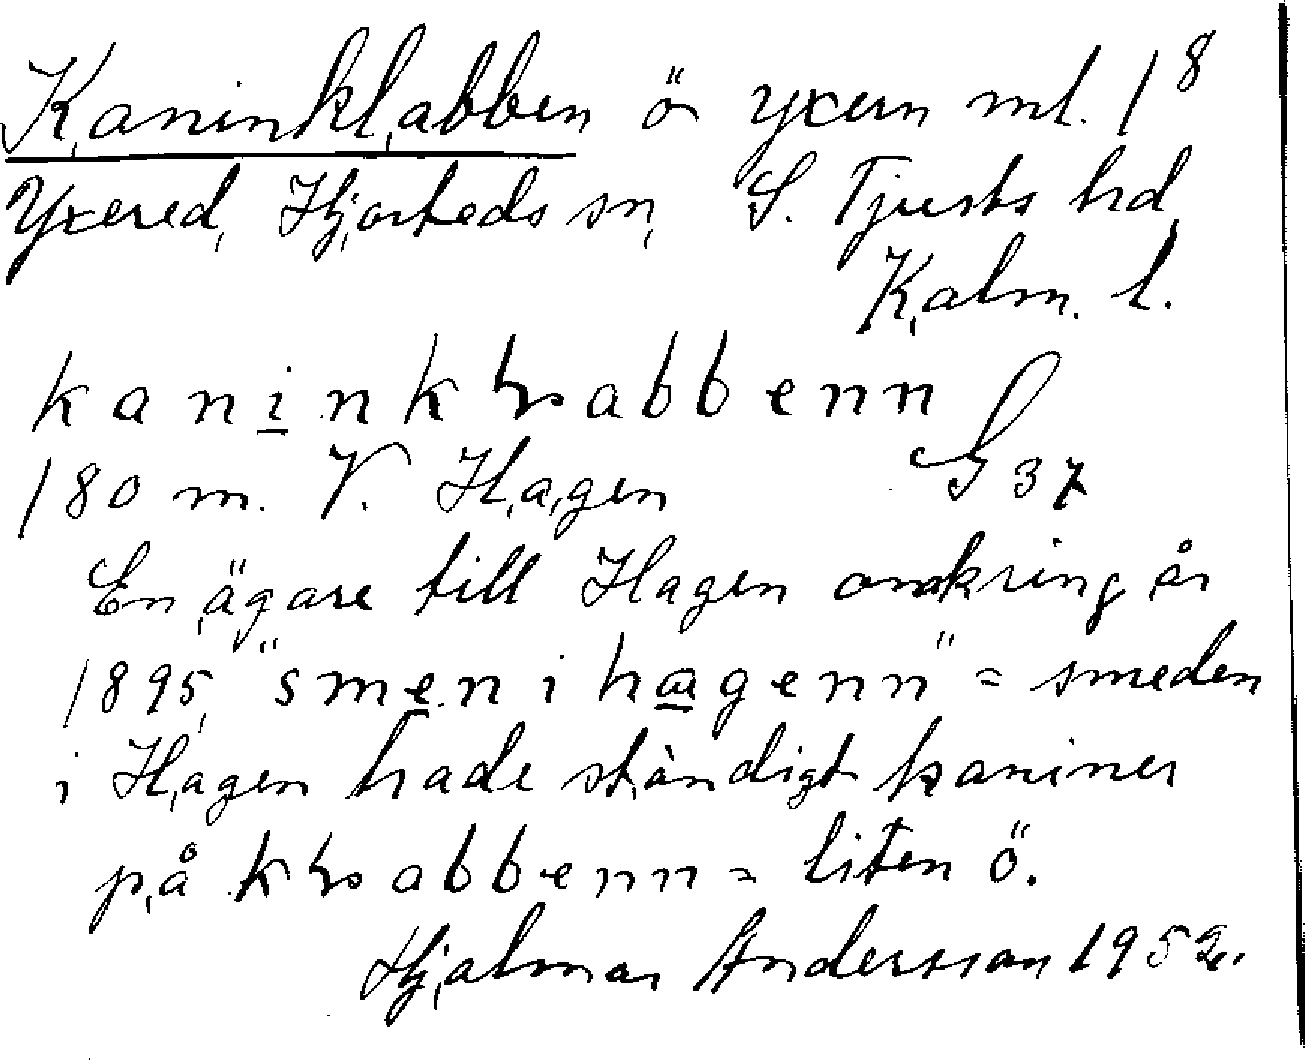 Kaninklabben ö Yxern ml. 1⁸
Yxered, Hjorteds sn, S. Tjusts hd,
Kalm. l.
kaninkɭabbenn
180 m. V. Hagen G 37
En ägare till Hagen omkring år
1895, "smen i hagenn" = smeden
i Hagen hade ständigt kaniner
på kɭabbenn = liten ö.
Hjalmar Andersson 1952.